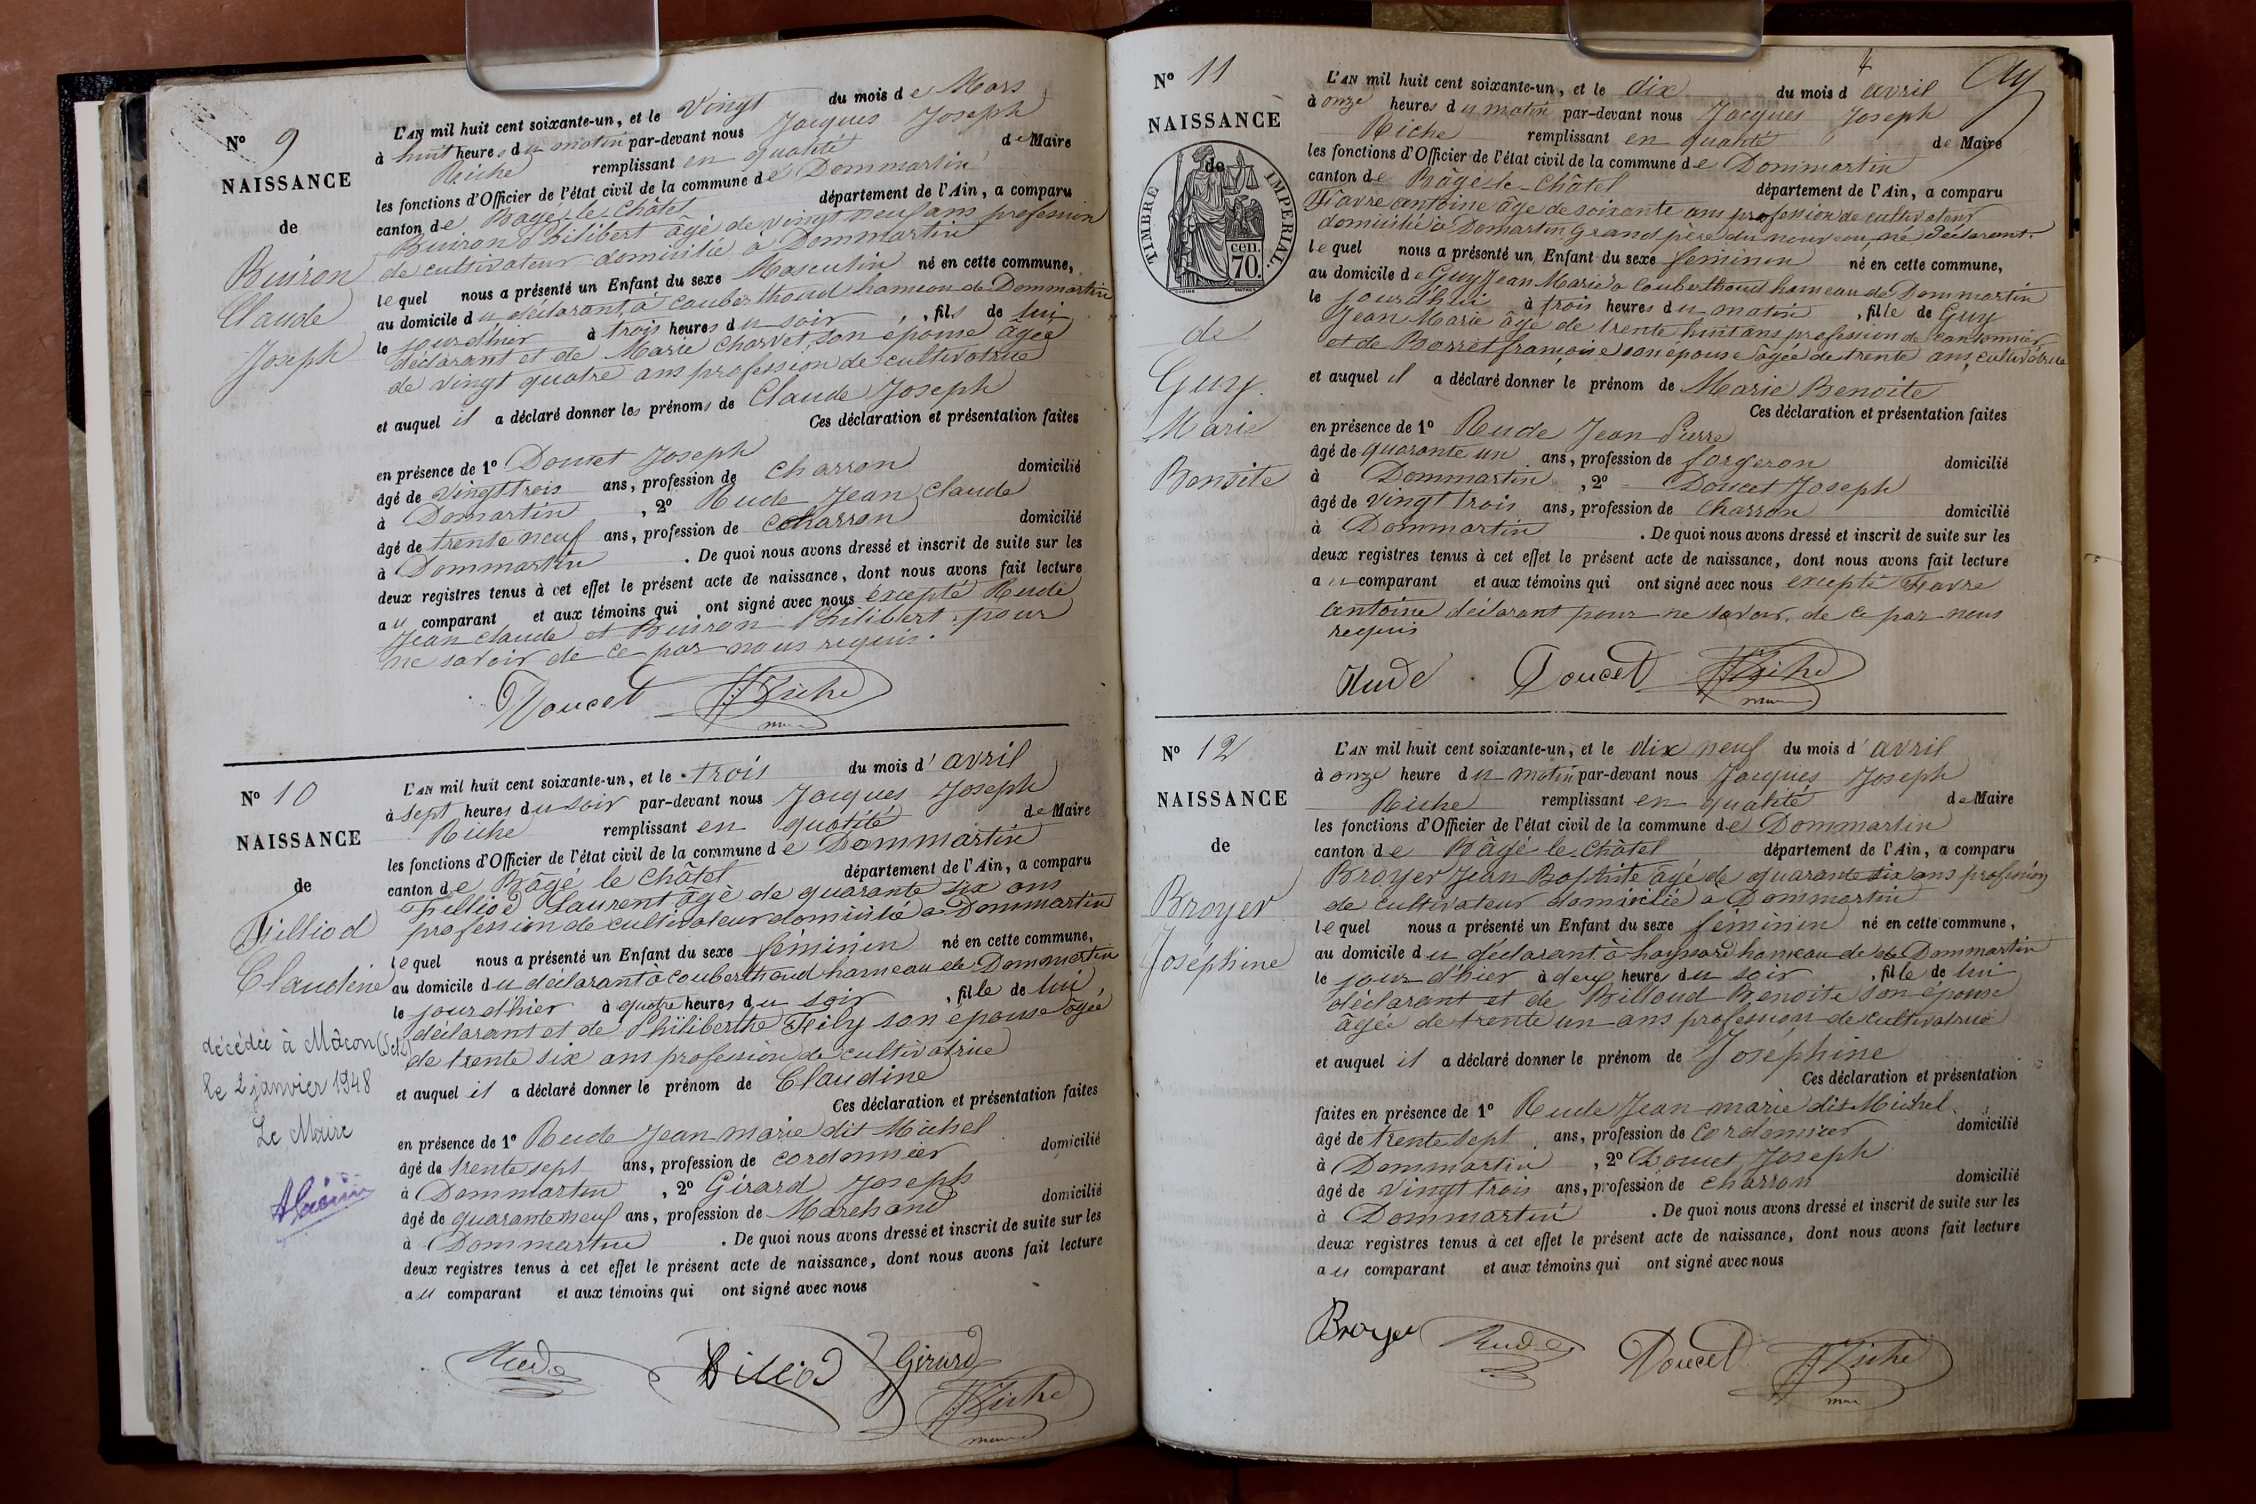 Nº 9
NAISSANCE
de
Buiron
Claude
Joseph
L'AN mil huit cent soixante-un, et le vingt du mois de Mars
à huit heures du matin par-devant nous Jacques Joseph
Riche remplissant en qualité de Maire
les fonctions d'Officier de l'état civil de la commune de Dommartin
canton de Bagé-le-Châtel département de l'Ain, a comparu
Buiron Philibert âgé de vingt neuf ans profession
de cultivateur domicilié a Dommartin
lequel nous a présenté un Enfant du sexe Masculin né en cette commune,
au domicile du déclarant à Couberthoud hameau de Dommartin
le jour d'hier à trois heures du soir, fils de lui
déclarant et de Marie Charvet son épouse âgée
de vingt quatre ans profession de cultivatrice
et auquel il a déclaré donner les prénoms de Claude Joseph
Ces déclaration et présentation faites
en présence de 1º Doucet Joseph
âgé de vingt trois ans, profession de charron domicilié
à Domartin, 2º Rude Jean Claude
âgé de trente neuf ans, profession de charron domicilié
à Dommartin. De quoi nous avons dressé et inscrit de suite sur les
deux registres tenus à cet effet le présent acte de naissance, dont nous avons fait lecture
au comparant et aux témoins qui ont signé avec nous excepté Rude
Jean Claude et Buiron Philibert pour
ne savoir de ce par nous requis.
Doucet JJ Riche
Nº 10
NAISSANCE
de
Filliod
Claudine
décédée à Mâcon (S&L)
le 2 janvier 1948
Le Maire
L'AN mil huit cent soixante-un, et le trois du mois d'avril
à sept heures du soir par-devant nous Jacques Joseph
Riche remplissant en qualité de Maire
les fonctions d'Officier de l'état civil de la commune de Dommartin
canton de Bâgé le Châtel département de l'Ain, a comparu
Filliod Laurent âgé de quarante six ans
profession de cultivateur domicilié a Dommartin
lequel nous a présenté un Enfant du sexe féminin né en cette commune,
au domicile du déclarant à Couberthoud hameau de Dommartin
le jour d'hier à quatre heures du soir, fille de lui
déclarant et de Philiberthe Fily son épouse âgée
de trente six ans profession de cultivatrice
et auquel il a déclaré donner le prénom de Claudine
Ces déclaration et présentation faites
en présence de 1º Rude Jean marie dit Michel
âgé de trente sept ans, profession de cordonnier domicilié
à Dommartin, 2º Girard Joseph
âgé de quarante neuf ans, profession de Marchand domicilié
à Dommartin. De quoi nous avons dressé et inscrit de suite sur les
deux registres tenus à cet effet le présent acte de naissance, dont nous avons fait lecture
au comparant et aux témoins qui ont signé avec nous
Rude Filliod Girard
JJ Riche
4
Nº 11
NAISSANCE
de
TIMBRE IMPERIAL.
cen.
70.
de
Guy
Marie
Benoite
L'AN mil huit cent soixante-un, et le dix du mois d avril
à onze heures du matin par-devant nous Jacques Joseph
Riche remplissant en qualité de Maire
les fonctions d'Officier de l'état civil de la commune de Dommartin
canton de Bâgé-le-Châtel département de l'Ain, a comparu
Favre antoine âgé de soixante ans profession de cultivateur
domicilié à Domartin Grand père du nouveau né déclarant.
lequel nous a présenté un Enfant du sexe féminin né en cette commune,
au domicile de Guy Jean Marie à Couberthoud hameau de Dommartin
le jourd'hui à trois heures du matin, fille de Guy
Jean Marie âgé de trente huit ans profession de cantonnier
et de Borret françoise son épouse âgée de trente ans, cultivatrice
et auquel il a déclaré donner le prénom de Marie Benoite
Ces déclaration et présentation faites
en présence de 1º Rude Jean Pierre
âgé de quarante un ans, profession de forgeron domicilié
à Dommartin, 2º Doucet Joseph
âgé de vingt trois ans, profession de charron domicilié
à Dommartin. De quoi nous avons dressé et inscrit de suite sur les
deux registres tenus à cet effet le présent acte de naissance, dont nous avons fait lecture
au comparant et aux témoins qui ont signé avec nous excepté Favre
antoine déclarant pour ne savoir de ce par nous
requis
Rude Doucet JJ Riche
Nº 12
NAISSANCE
de
Broyer
Joséphine
L'AN mil huit cent soixante-un, et le dix neuf du mois d'avril
à onze heure du matin par-devant nous Jacques Joseph
Riche remplissant en qualité de Maire
les fonctions d'Officier de l'état civil de la commune de Dommartin
canton de Bâgé le Châtel département de l'Ain, a comparu
Broyer Jean Baptiste âgé de quarante six ans profession
de cultivateur domicilié a Dommartin
lequel nous a présenté un Enfant du sexe féminin né en cette commune,
au domicile du déclarant à hameau de Dommartin
le jour d'hier à deux heures du soir, fille de lui
déclarant et de Billoud Benoite son épouse
âgée de trente un ans profession de cultivatrice
et auquel il a déclaré donner le prénom de Joséphine
Ces déclaration et présentation
faites en présence de 1º Rude Jean marie dit Michel
âgé de trente sept ans, profession de cordonnier domicilié
à Dommartin, 2º Doucet Joseph
âgé de vingt trois ans, profession de charron domicilié
à Dommartin. De quoi nous avons dressé et inscrit de suite sur les
deux registres tenus à cet effet le présent acte de naissance, dont nous avons fait lecture
au comparant et aux témoins qui ont signé avec nous
Broyer Rude Doucet JJ Riche